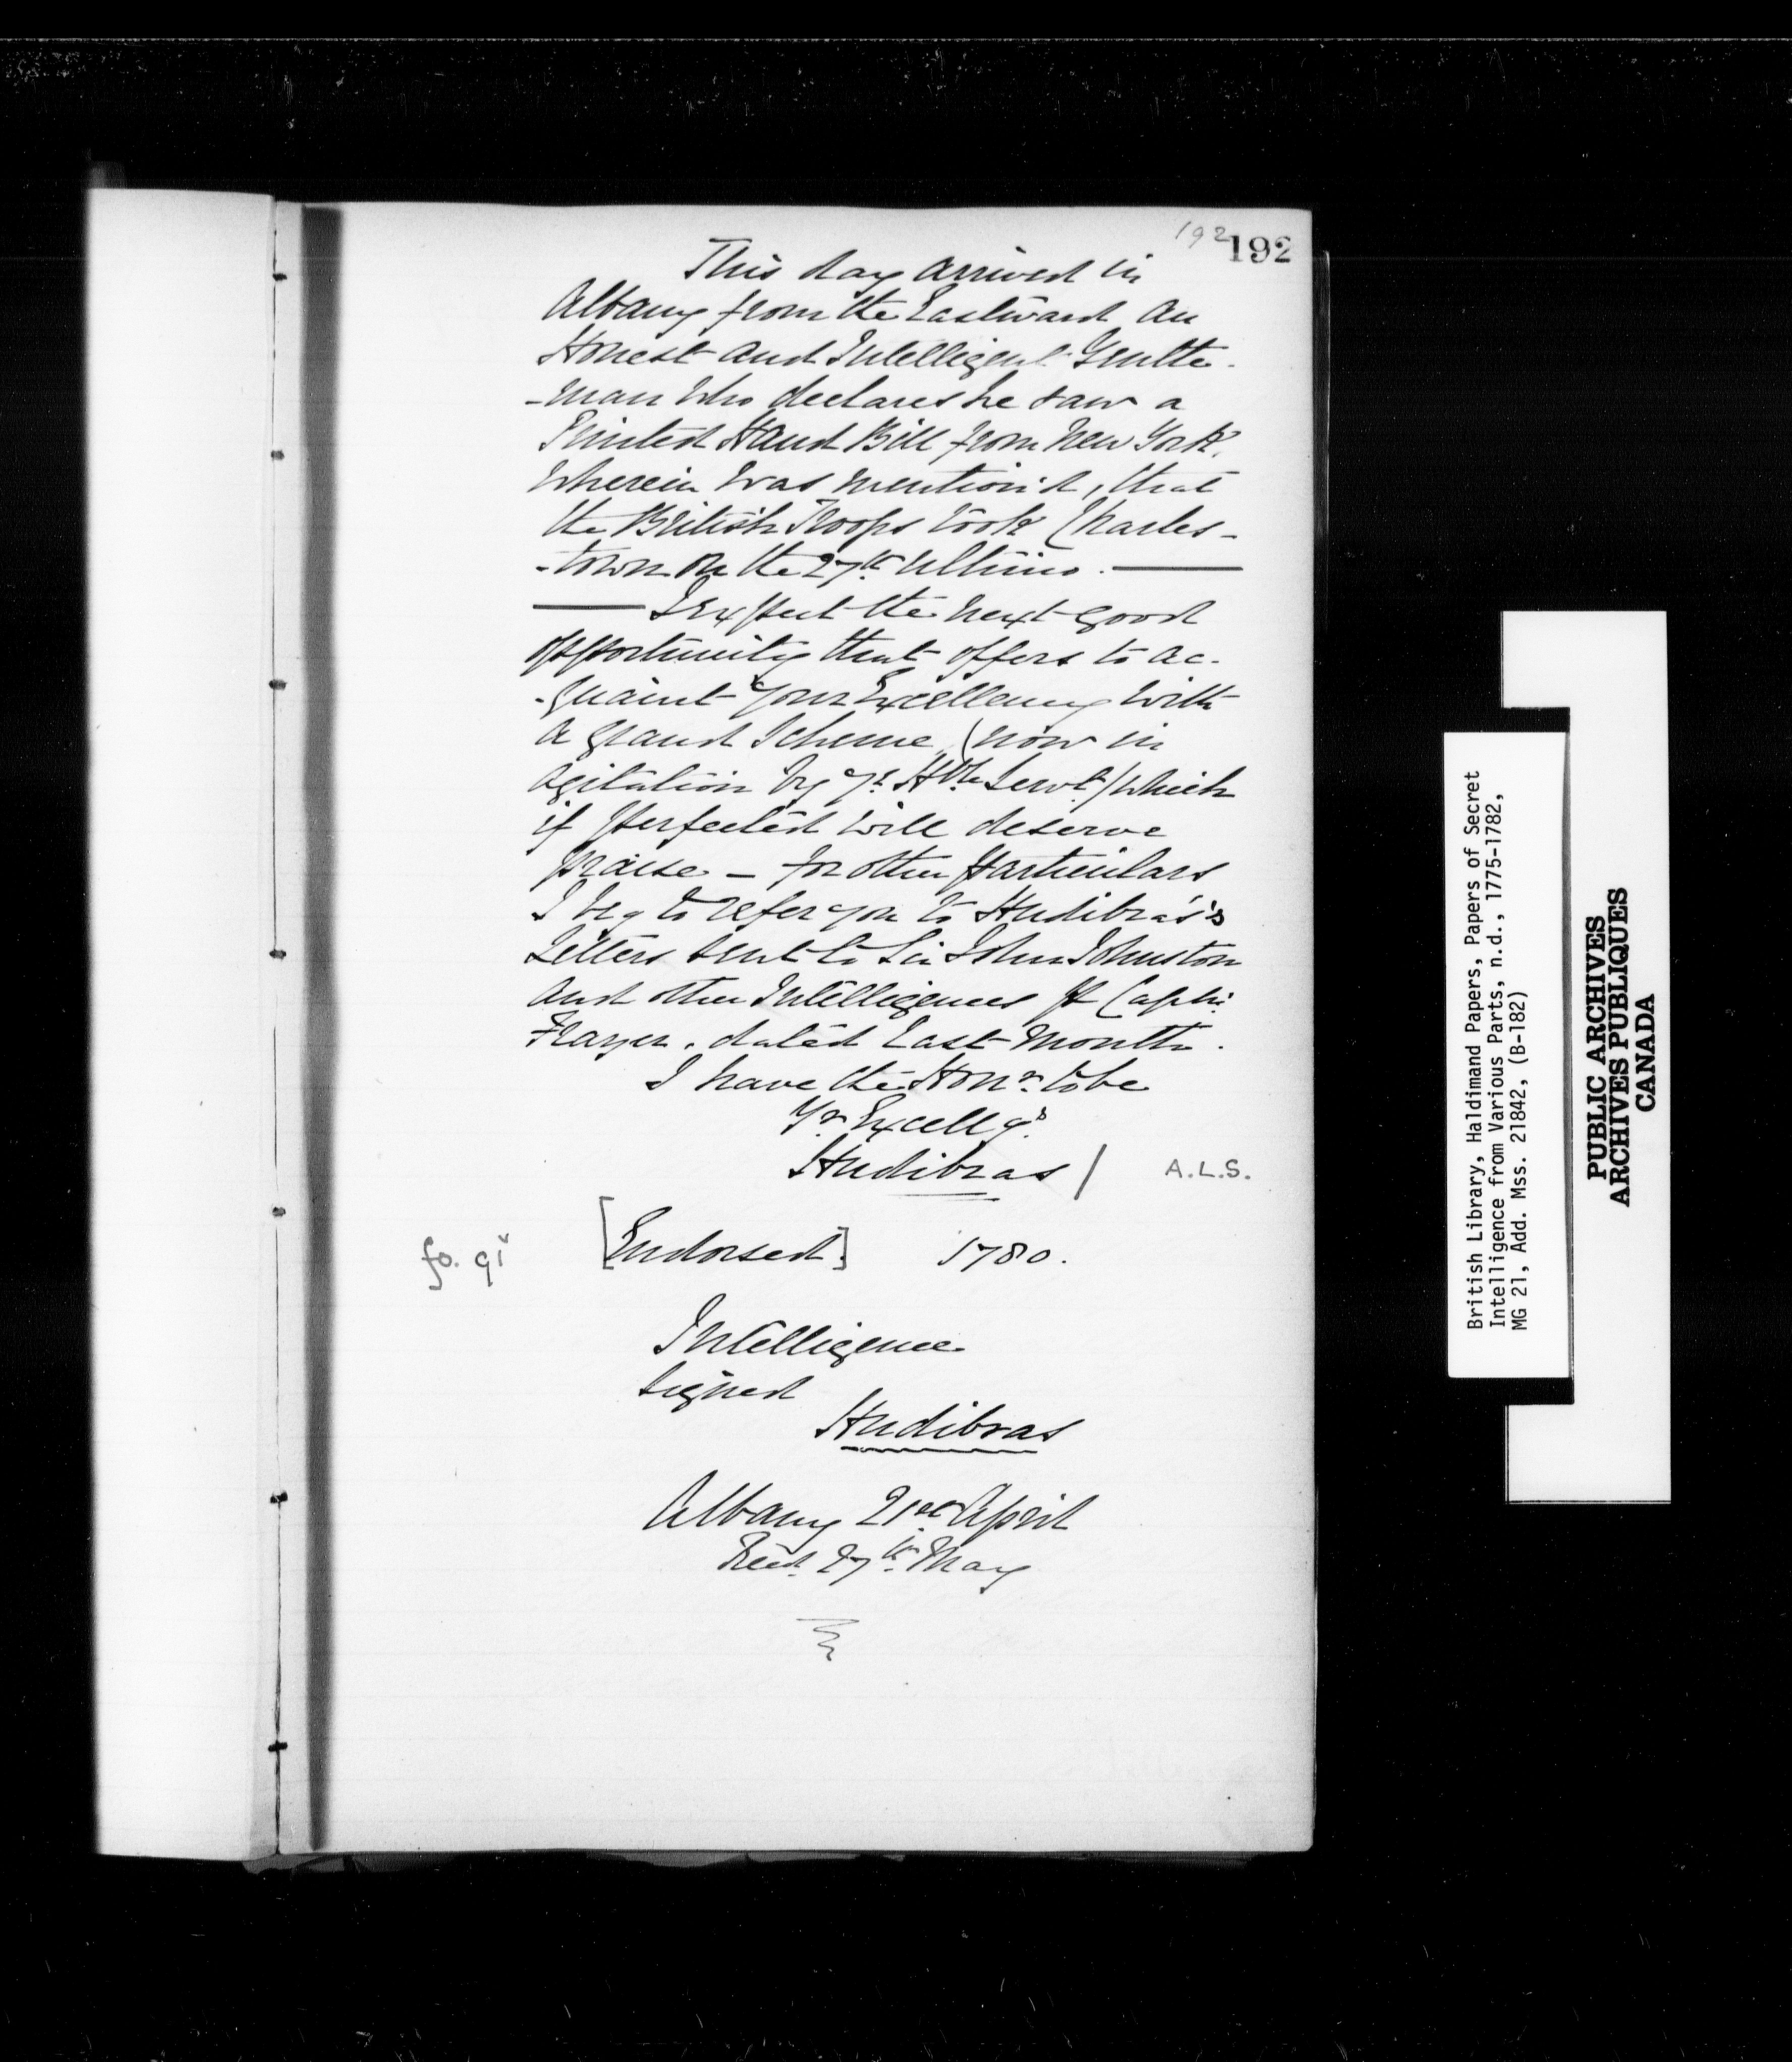 192 192
This day arrived in
Albany from the Eastward an
Honest and Intelligent Gentle-
-man who declares he saw a
Printed Hand Bill from New York,
wherein was mention'd, that
the British Troops took Charles-
-town on the 27th. Ultimo.
I expect the next good
opportunity that offers to ac-
-quaint your Excellency with
a grand Scheme (now in
agitation by yr. Hble Servt.) which
if perfected will deserve
praise - for other particulars
I beg to refer you to Hudibras's
Letters sent to Sir John Johnston
and other Intelligences pr Captn.
Frayer. dated last Month.
I have the Honr. to be
Yr. Excellys.
Hudibras / A.L.S.
fo. 91v [Endorsed] 1780.
Intelligence
signed
Hudibras
Albany 21st April
Recd. 27th. May
British Library, Haldimand Papers, Papers of Secret
Intelligence from Various Parts, n.d., 1775-1782,
MG 21, Add. Mss. 21842, (B-182)
PUBLIC ARCHIVES
ARCHIVES PUBLIQUES
CANADA